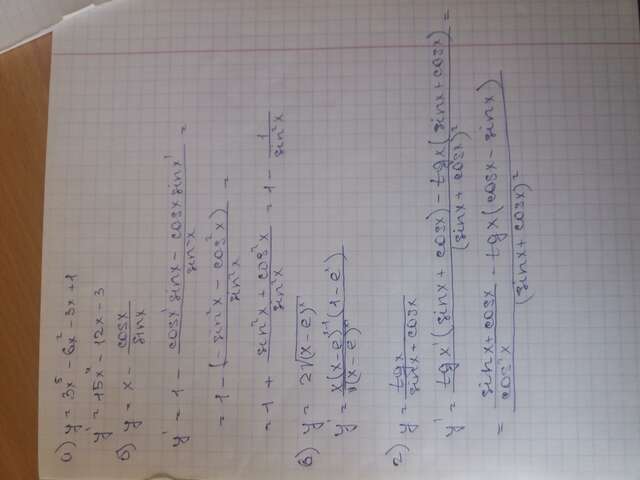 а) y = 3x^5 - 6x^2 - 3x + 1
y' = 15x^4 - 12x - 3
б) y = x - cosx/sinx
y' = 1 - (cosx' sinx - cosx sinx')/sin^2x =
= 1 - (-sin^2x - cos^2x)/sin^2x =
= 1 + (sin^2x + cos^2x)/sin^2x = 1 - 1/sin^2x
в) y = 2√(x-e)^x
y' = x(x-e)^{x-1}(1-e')/√(x-e)^x
г) y = tgx/(sinx + cosx)
y' = (tgx'(sinx + cosx) - tgx(sinx + cosx)')/(sinx + cosx)^2 =
= ((sinx + cosx)/cos^2x - tgx(cosx - sinx))/(sinx + cosx)^2